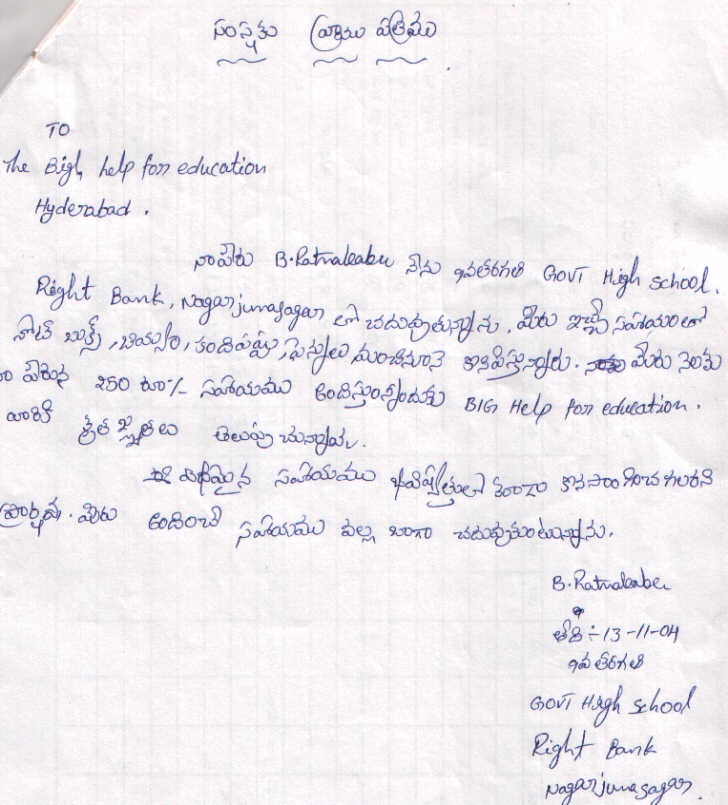 సంస్థకు వ్రాయు పత్రిము
TO
The Bigh help for education
Hyderabad.
నా పేరు B.Ratnababu నేను 9వతరగతి GOVT High school.
Right Bank, Nagarjunasagar లో చదువుతున్నాను. మీరు ఇచ్చే సహాయంలో
నోట్ బుక్స్, బియ్యం, కందిపప్పు, పెన్నులు మంచినూనె కొనిపిస్తున్నారు. మీరు నెలకు
పేరున 250 రూ/- సహాయము అందిస్తున్నందుకు BIG Help for education.
వారికి కృతజ్ఞతలు తెలుపు చున్నాము.
ఈ విధమైన సహాయము భవిష్యత్తులో కూడా కొనసాగించ గలరని
ప్రార్థన. మీరు అందించే సహాయము వల్ల బాగా చదువుకుంటున్నాను.
B.Ratnababu
తేది ÷ 13-11-04
9వ తరగతి
GOVT High school
Right Bank
Nagarjunasagar.